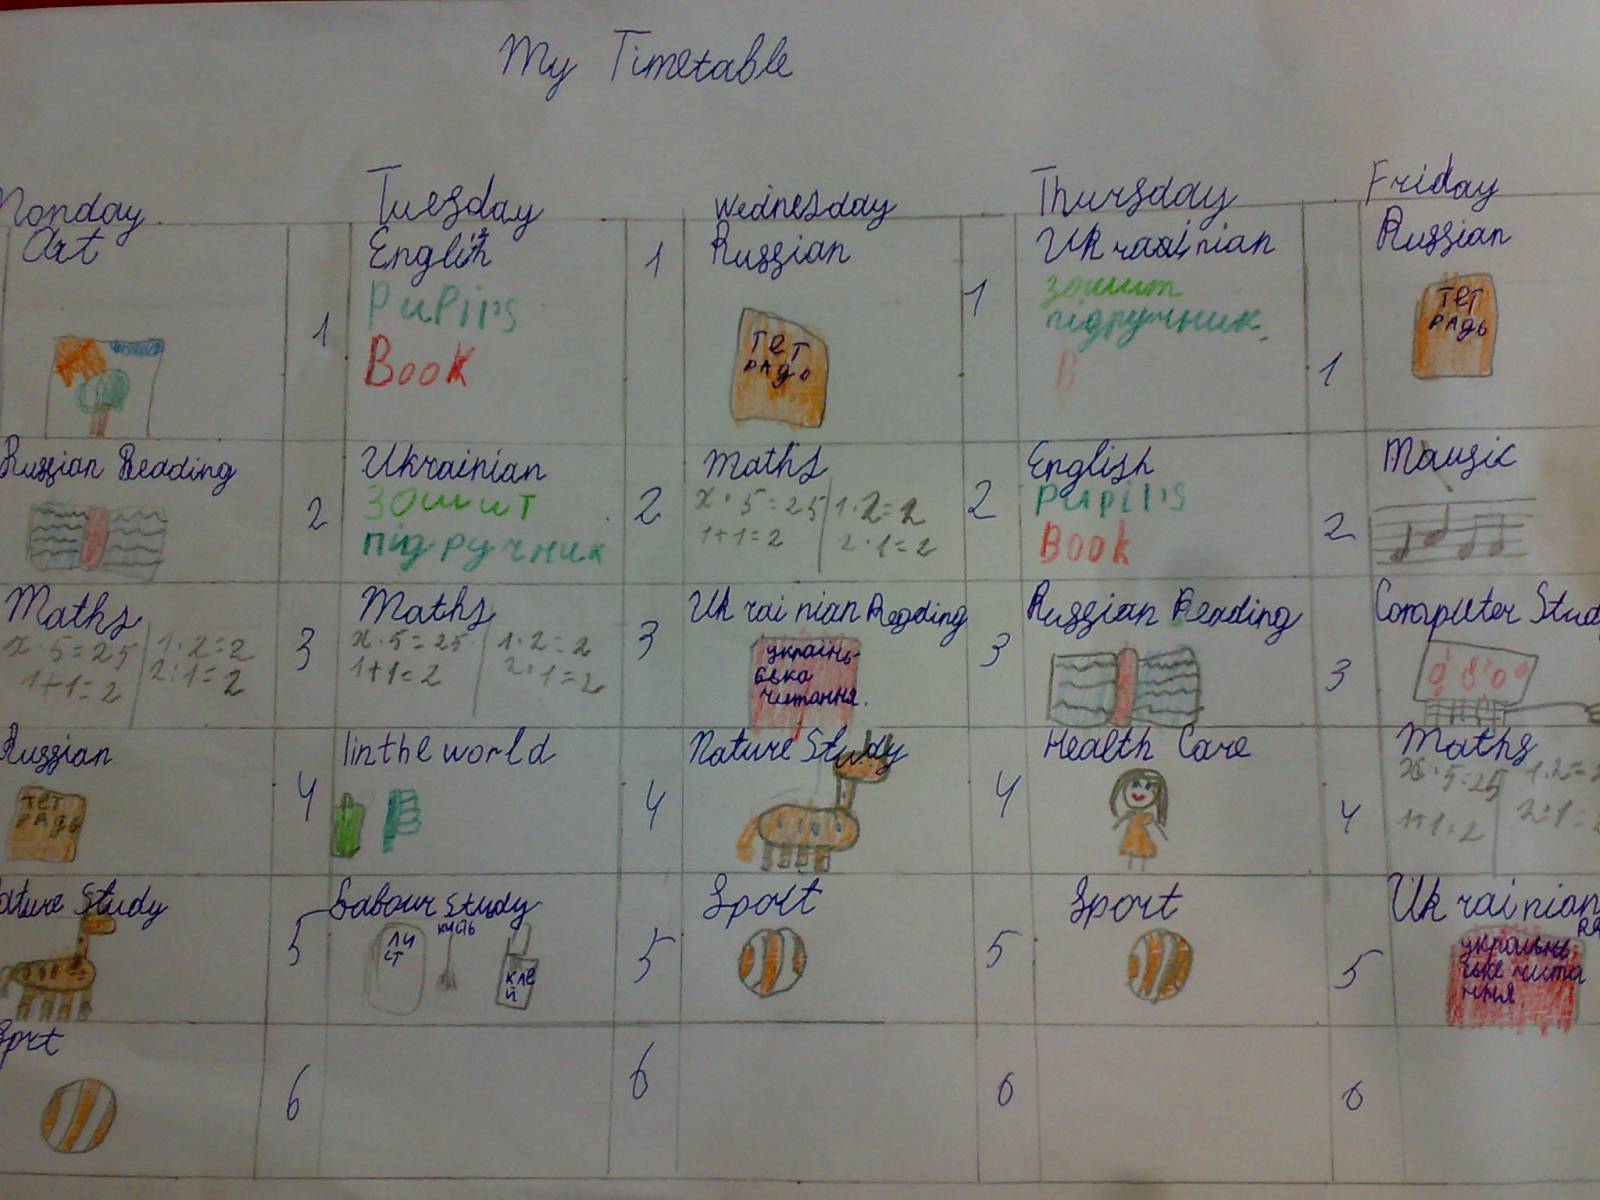 My Timetable
Monday Tuesday Wednesday Thursday Friday
Art
1 English
Pupils
Book
1 Russian
тет
радь
1 Ukrainian
зошит
підручник.
В
1 Russian
тет
радь
Russian Reading
2 Ukrainian
зошит
підручник
2 Maths
x·5=25 1·2=2
1+1=2 2·1=2
2 English
Pupils
Book
2 Mausic
Maths
x·5=25 1·2=2
1+1=2 2:1=2
3 Maths
x·5=25 1·2=2
1+1=2 2:1=2
3 Ukrainian Reading
українь-
ська
читання.
3 Russian Reading
3 Computer Stud
Russian
тет
радь
4 I in the world
4 Nature Study
4 Health Care
4 Maths
x·5=25 1·2=
1+1=2 2:1=
ature Study
5 Labour Study
ли
ст
кисть
кле
й
5 Sport
5 Sport
5 Ukrainian
Re
українь
ське чита
ння
Sport
6
6
6
6